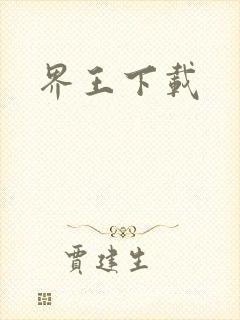 界王下載
賈建生